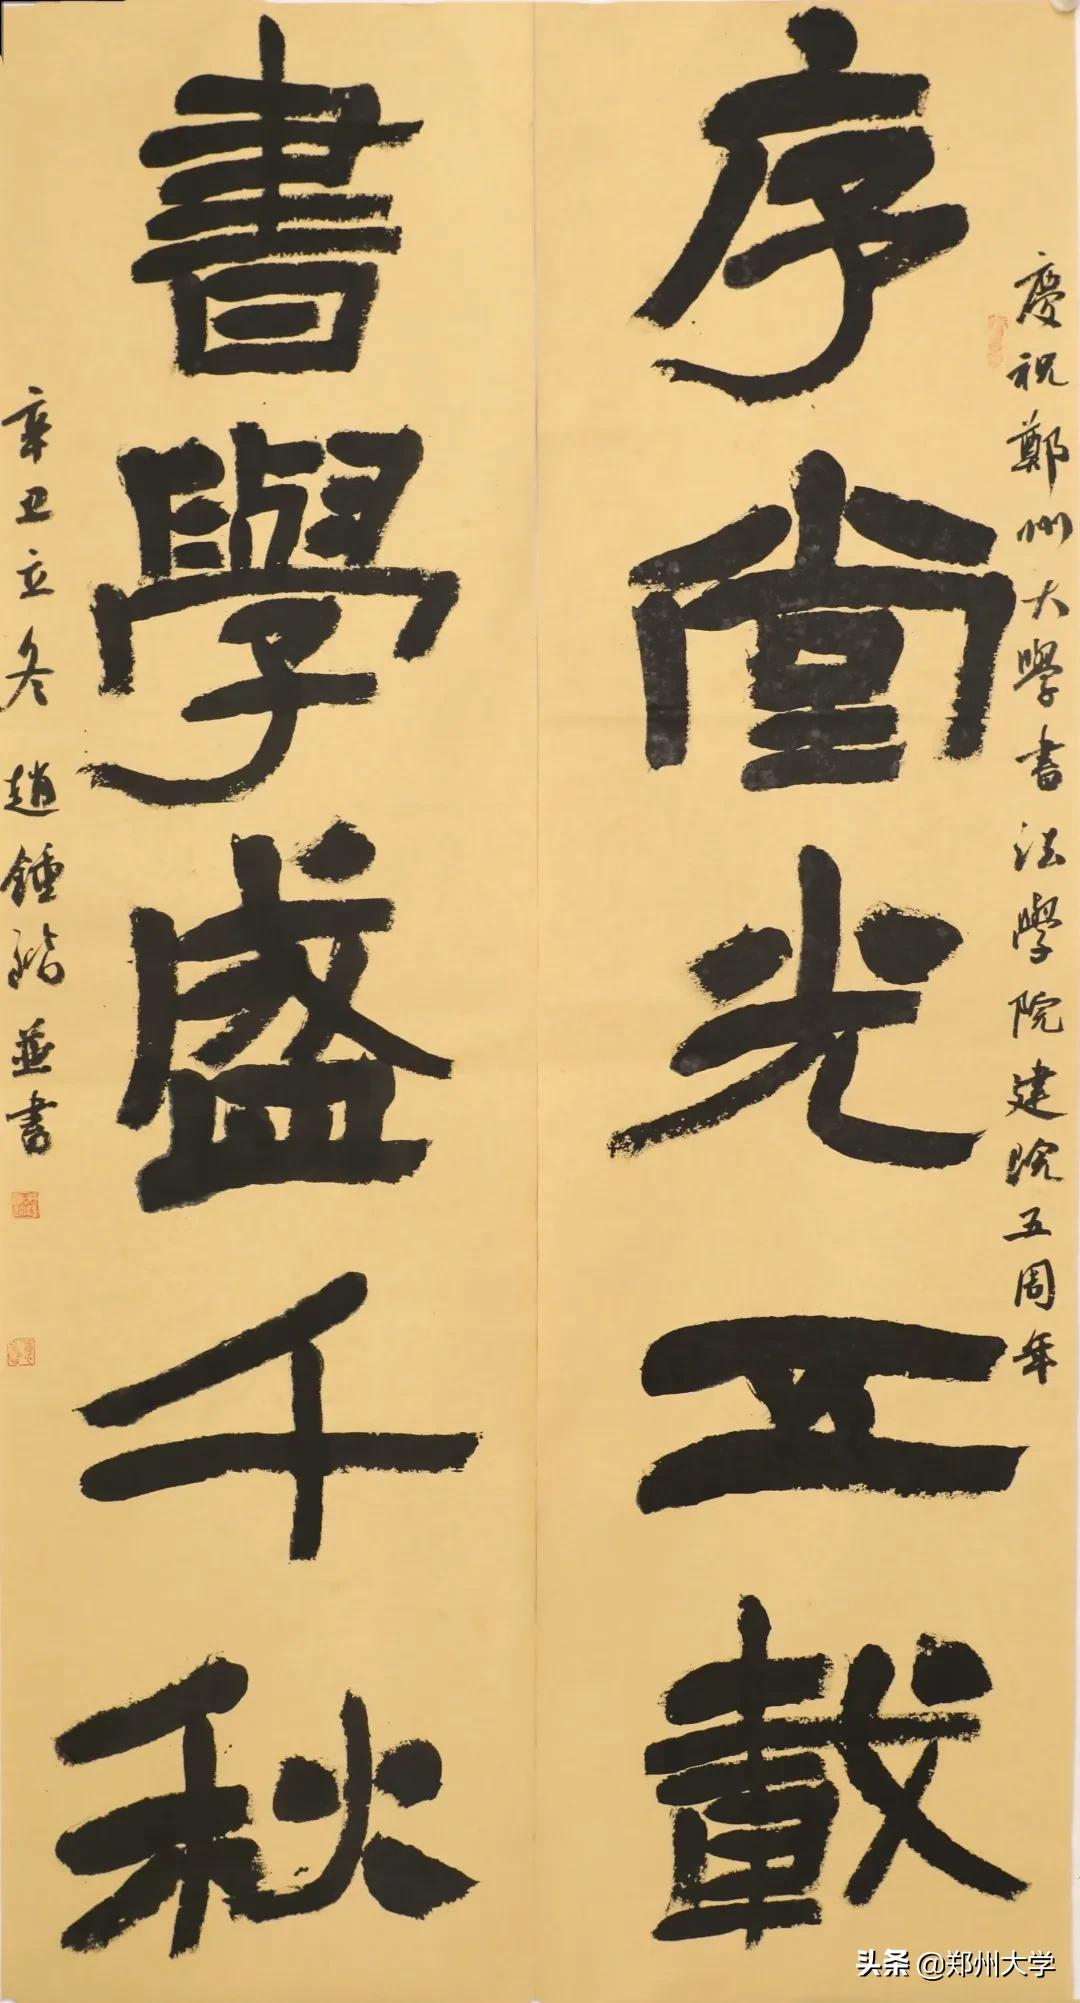 慶祝鄭州大學書法學院建院五周年
序堂光五載
書學盛千秋
辛丑立冬 趙鍾 並書
头条 @郑州大学